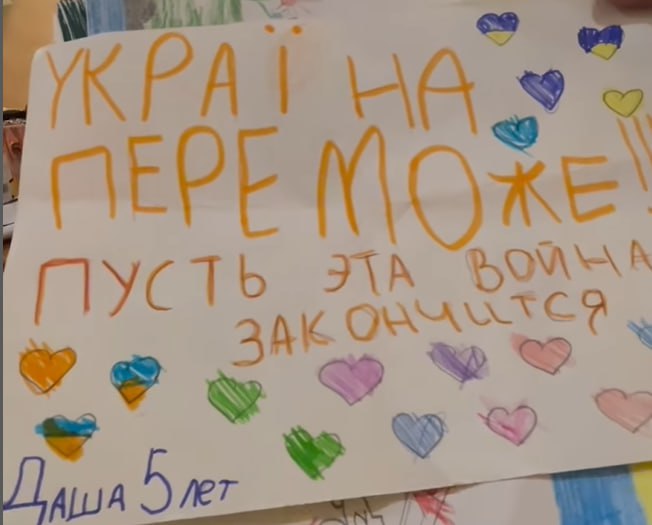 УКРАЇНА
ПЕРЕМОЖЕ!!
ПУСТЬ ЭТА ВОЙНА
ЗАКОНЧИТСЯ
ДАША 5 ЛЕТ